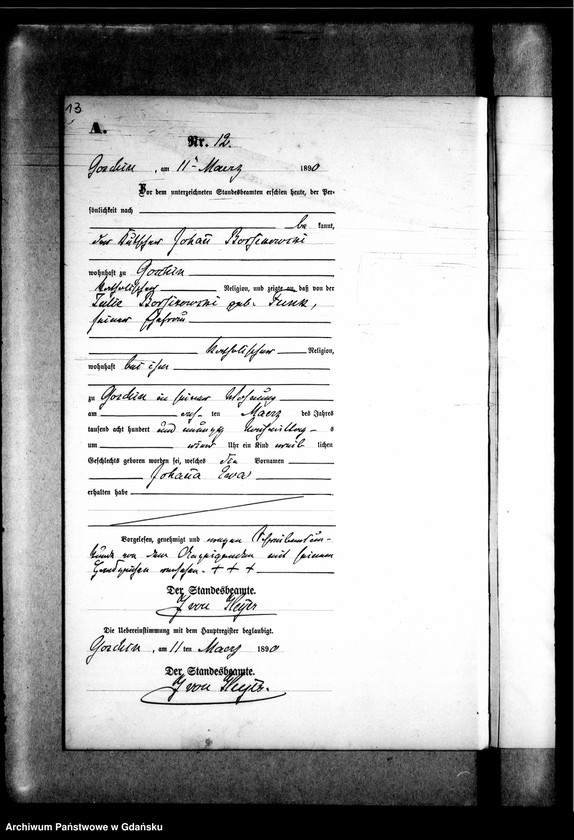 13
A.
Nr. 12.
Goschin, am 11ⁿ Maerz 1890
Vor dem unterzeichneten Standesbeamten erschien heute, der Per-
sönlichkeit nach
be kannt,
der Johann Borsikowski
wohnhaft zu Goschin
katholischer Religion, und zeigte an, daß von der
Julie Borsikowski geb. Funk,
seiner Ehefrau
katholischer Religion,
wohnhaft bei ihm
zu Goschin in seiner Wohnung
am ten Maerz des Jahres
tausend acht hundert und neunzig Nachmittag s
um Uhr ein Kind weib lichen
Geschlechts geboren worden sei, welches die Vornamen
Johanna Eva
erhalten habe
Vorgelesen, genehmigt und wegen Schreibensun-
kunde von dem Anzeigenden mit seinem
Handzeichen versehen. + + +
Der Standesbeamte.
J von Heyer
Die Uebereinstimmung mit dem Hauptregister beglaubigt.
Goschin, am 11 ten Maerz 1890
Der Standesbeamte.
J von Heyer.
Archiwum Państwowe w Gdańsku